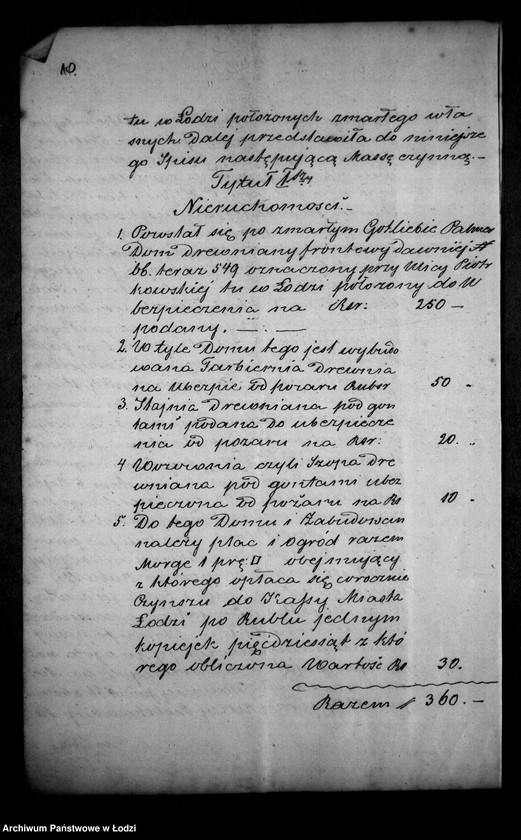 10.
tu w Łodzi położonych zmarłego wła
snych. Dalej przedstawiła do niniejsze
go Spisu następującą Massę czynną.—
Tytuł I szy
Nieruchomości.—
1. Pozostał się po zmarłym Gotliebie Palmer
Dom Drewniany frontowy dawniej N
66. teraz 549 oznaczony przy Ulicy Piotr
kowskiej tu w Łodzi położony do U
bezpieczenia na Rsr: 250 —
podany. —.—
2. W tyle Domu tego jest wybudo
wana Farbiernia Drewnia
na Ubezpie: od pożaru Rubsr 50 -
3. Stajnia Drewniana pod gon
tami podana do ubezpiecze
nia od pożaru na Rsr: 20. „
4 Wozownia czyli Szopa dre
wniana pod gontami ubez
pieczona od pożaru na Rs 10 -
5. Do tego Domu i Zabudowań
należy plac i Ogród razem
Morge 1 prę: □ obejmujący
z którego opłaca się corocznie
Czynszu do Kassy Miasta
Łodzi po Rublu jednym
kopiejek pięćdziesiąt z któ
rego obliczona Wartość Rs 30.
Razem 360.—
Archiwum Państwowe w Łodzi